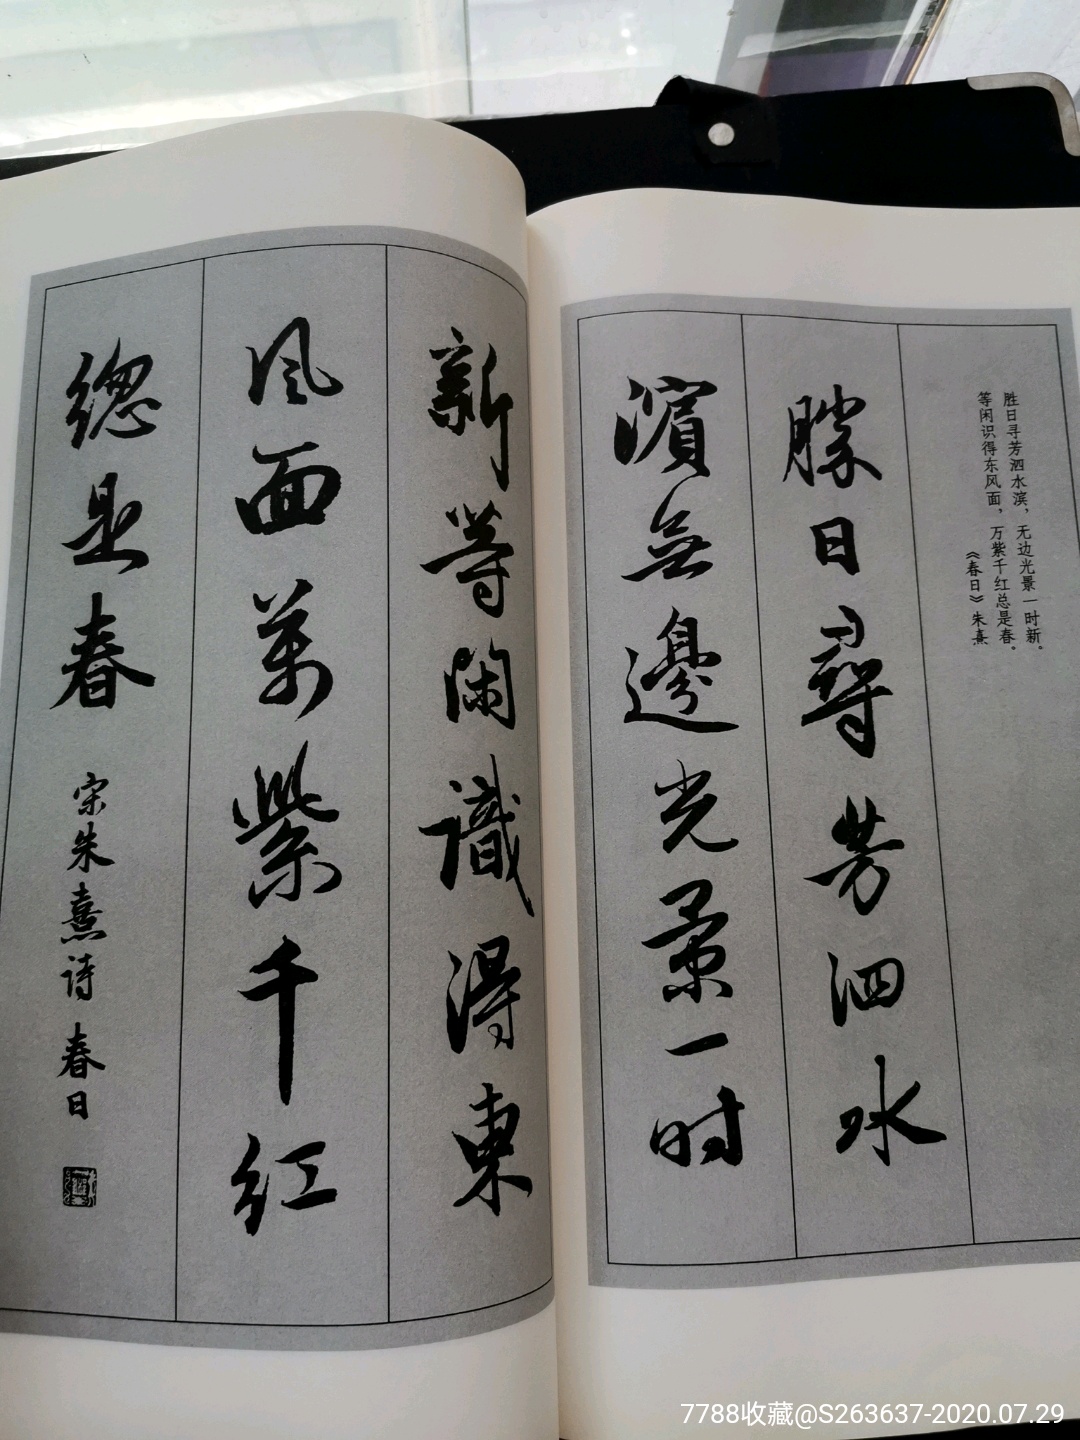 胜日寻芳泗水滨，无边光景一时新。
等闲识得东风面，万紫千红总是春。
《春日》朱熹
勝日尋芳泗水
濱無邊光景一时
新等閑識得東
风面萬紫千红
總是春
宋朱熹诗 春日
7788收藏@S263637-2020.07.29